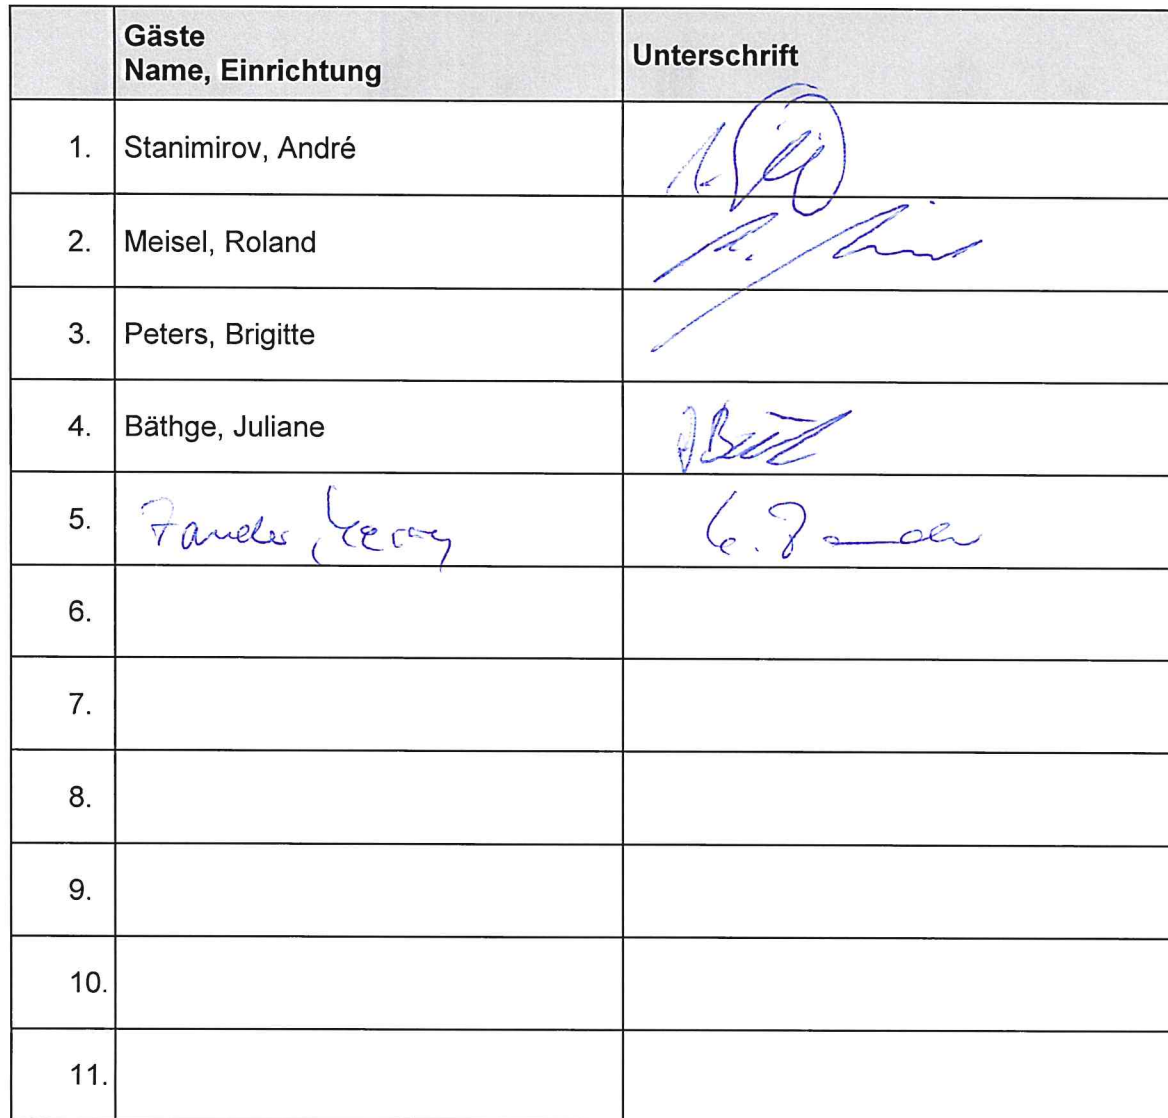 Gäste
Name, Einrichtung Unterschrift
1. Stanimirov, André
2. Meisel, Roland
3. Peters, Brigitte
4. Bäthge, Juliane
5. Zander,
6.
7.
8.
9.
10.
11.